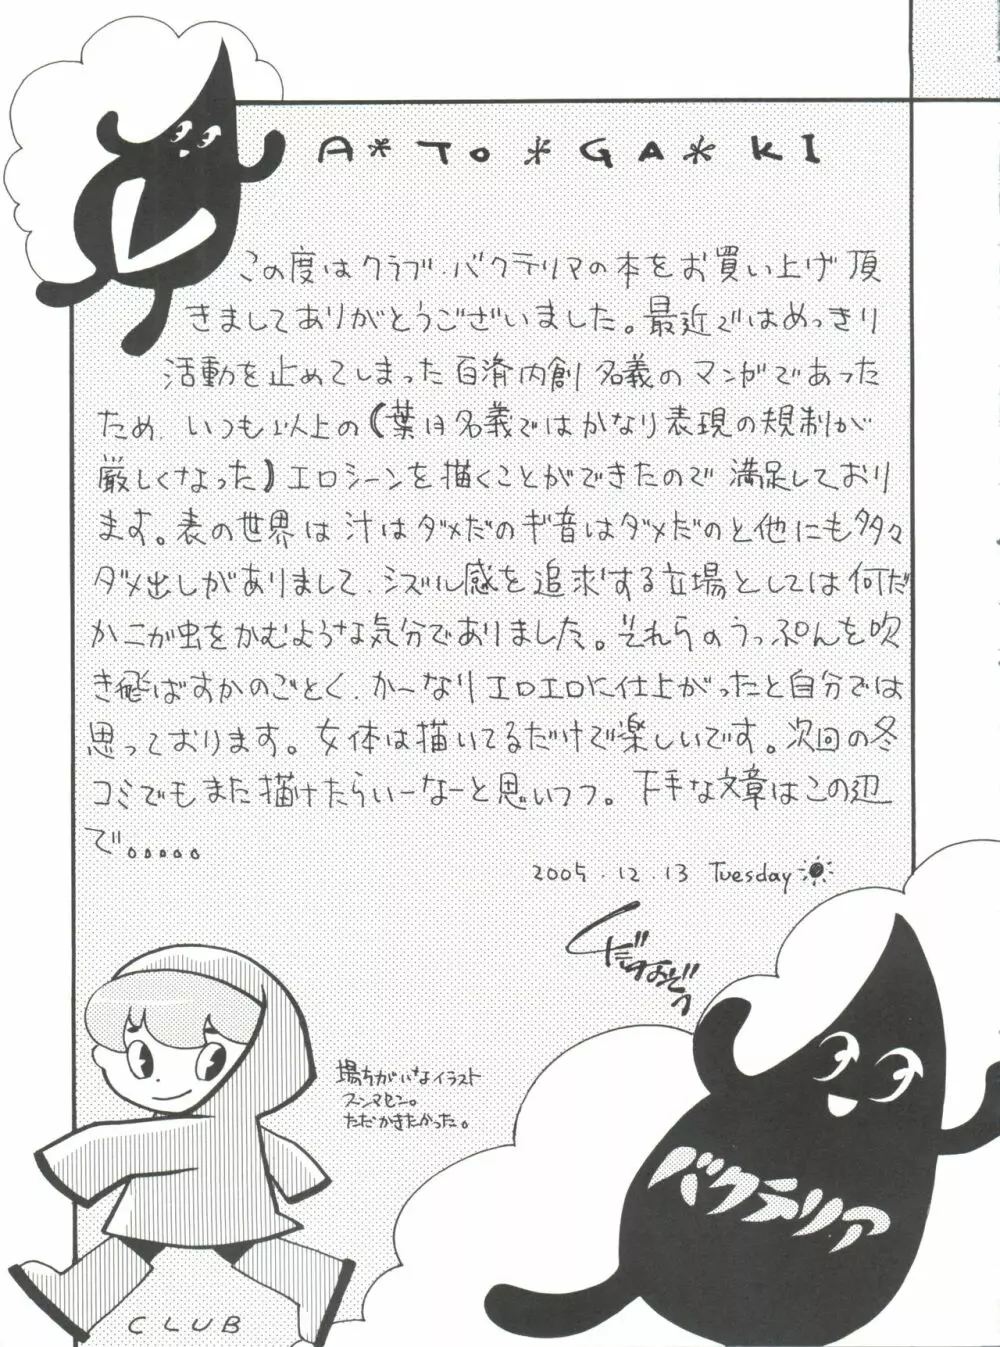 A*TO*GA*KI
この度はクラブ・バクテリマの本をお買い上げ頂
きましてありがとうございました。最近ではめっきり
活動を止めてしまった百済内創名義のマンガであった
ため、いつも以上の(葉月名義ではかなり表現の規制が
厳しくなった)エロシーンを描くことができたので満足しており
ます。表の世界は汁はダメだのギ音はダメだのと他にも多々
ダメ出しがありまして、シズル感を追求する立場としては何だ
か二が虫をかむような気分でありました。それらのうっぷんを吹
き飛ばすかのごとく、かーなりエロエロに仕上がったと自分では
思っております。女体は描いてるだけで楽しいです。次回の冬
コミでもまた描けたらいーなーと思いつつ。下手な文章はこの辺
で。。。。。
2005.12.13 Tuesday
場ちがいなイラスト
スンマセン。
ただかきたかった。
バクテリア
CLUB